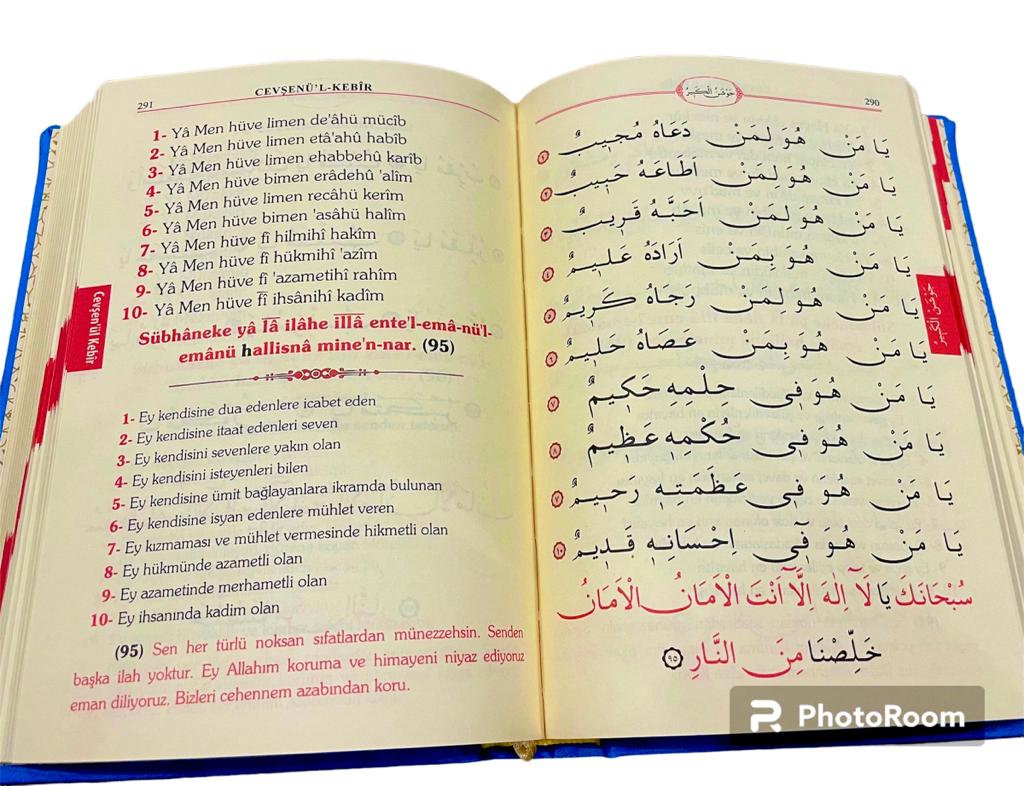 جَوْشَنُ الْكَبِيرُ
290
يَا مَنْ هُوَ لِمَنْ دَعَاهُ مُجِيبٌ ١
يَا مَنْ هُوَ لِمَنْ اَطَاعَهُ حَبِيبٌ ٢
يَا مَنْ هُوَ لِمَنْ اَحَبَّهُ قَرِيبٌ ٣
يَا مَنْ هُوَ بِمَنْ اَرَادَهُ عَلِيمٌ ٤
يَا مَنْ هُوَ لِمَنْ رَجَاهُ كَرِيمٌ ٥
يَا مَنْ هُوَ بِمَنْ عَصَاهُ حَلِيمٌ ٦
يَا مَنْ هُوَ فِي حِلْمِهِ حَكِيمٌ ٧
يَا مَنْ هُوَ فِي حُكْمِهِ عَظِيمٌ ٨
يَا مَنْ هُوَ فِي عَظَمَتِهِ رَحِيمٌ ٧
يَا مَنْ هُوَ فِٓي اِحْسَانِهِ قَدِيمٌ ١٠
سُبْحَانَكَ يَا لَٓا اِلٰهَ اِلَّٓا اَنْتَ الْاَمَانُ الْاَمَانُ
خَلِّصْنَا مِنَ النَّارِ ٩٥
جَوْشَنُ الْكَبِيرُ
291
CEVŞENÜ'L-KEBÎR
1- Yâ Men hüve limen de'âhü mücîb
2- Yâ Men hüve limen etâ'ahû habîb
3- Yâ Men hüve limen ehabbehû karîb
4- Yâ Men hüve bimen erâdehû 'alîm
5- Yâ Men hüve limen recâhû kerîm
6- Yâ Men hüve bimen 'asâhü halîm
7- Yâ Men hüve fî hilmihî hakîm
8- Yâ Men hüve fî hükmihî 'azîm
9- Yâ Men hüve fî 'azametihî rahîm
10- Yâ Men hüve fî ihsânihî kadîm
Sübhâneke yâ lâ ilâhe illâ ente'l-emâ-nü'l-
emânü hallisnâ mine'n-nar. (95)
Cevşen'ül Kebir
1- Ey kendisine dua edenlere icabet eden
2- Ey kendisine itaat edenleri seven
3- Ey kendisini sevenlere yakın olan
4- Ey kendisini isteyenleri bilen
5- Ey kendisine ümit bağlayanlara ikramda bulunan
6- Ey kendisine isyan edenlere mühlet veren
7- Ey kızmaması ve mühlet vermesinde hikmetli olan
8- Ey hükmünde azametli olan
9- Ey azametinde merhametli olan
10- Ey ihsanında kadim olan
(95) Sen her türlü noksan sıfatlardan münezzehsin. Senden
başka ilah yoktur. Ey Allahım koruma ve himayeni niyaz ediyoruz
eman diliyoruz. Bizleri cehennem azabından koru.
PhotoRoom